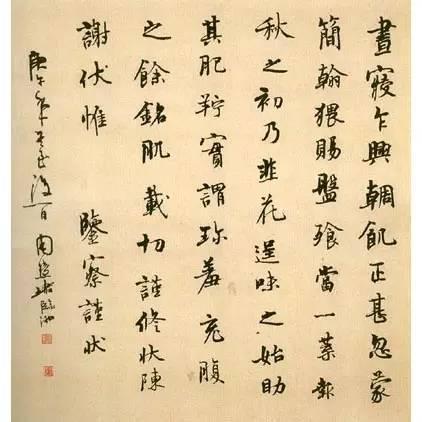 晝寢乍興輖飢正甚忽蒙
簡翰猥賜盤飧當一葉報
秋之初乃韭花逞味之始助
其肥羜實謂珍羞充腹
之餘銘肌載切謹修狀陳
謝伏惟 鑒察謹狀
庚午年 周慧珺臨池